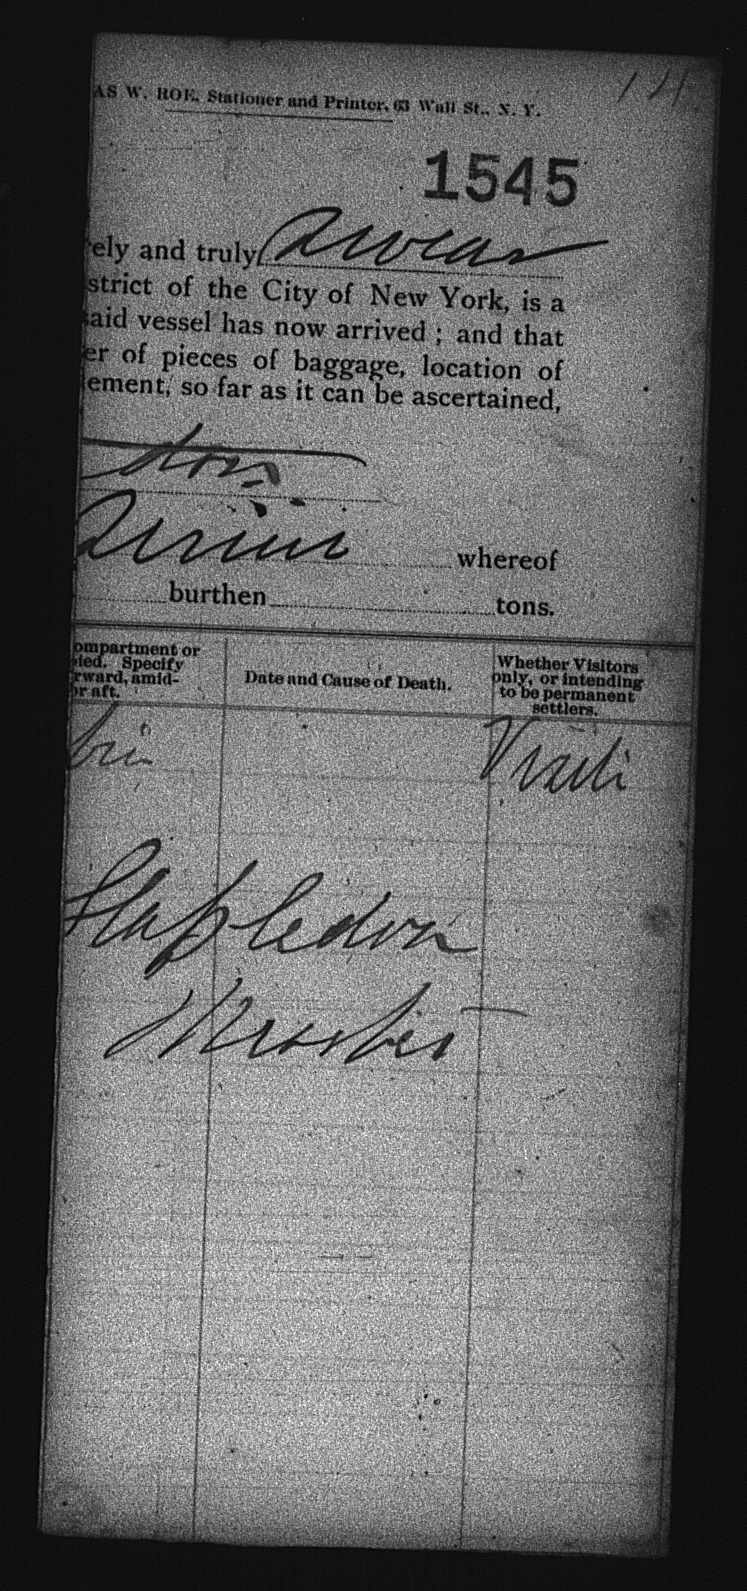 AS W. ROE, Stationer and Printer, 63 Wall St., N. Y.
1545
ely and truly swear
strict of the City of New York, is a
said vessel has now arrived ; and that
er of pieces of baggage, location of
ement, so far as it can be ascertained,
whereof
burthen tons.
ompartment or
ied. Specify
rward, amid-
or aft.
Date and Cause of Death.
Whether Visitors
only, or intending
to be permanent
settlers.
Stapledon
Master